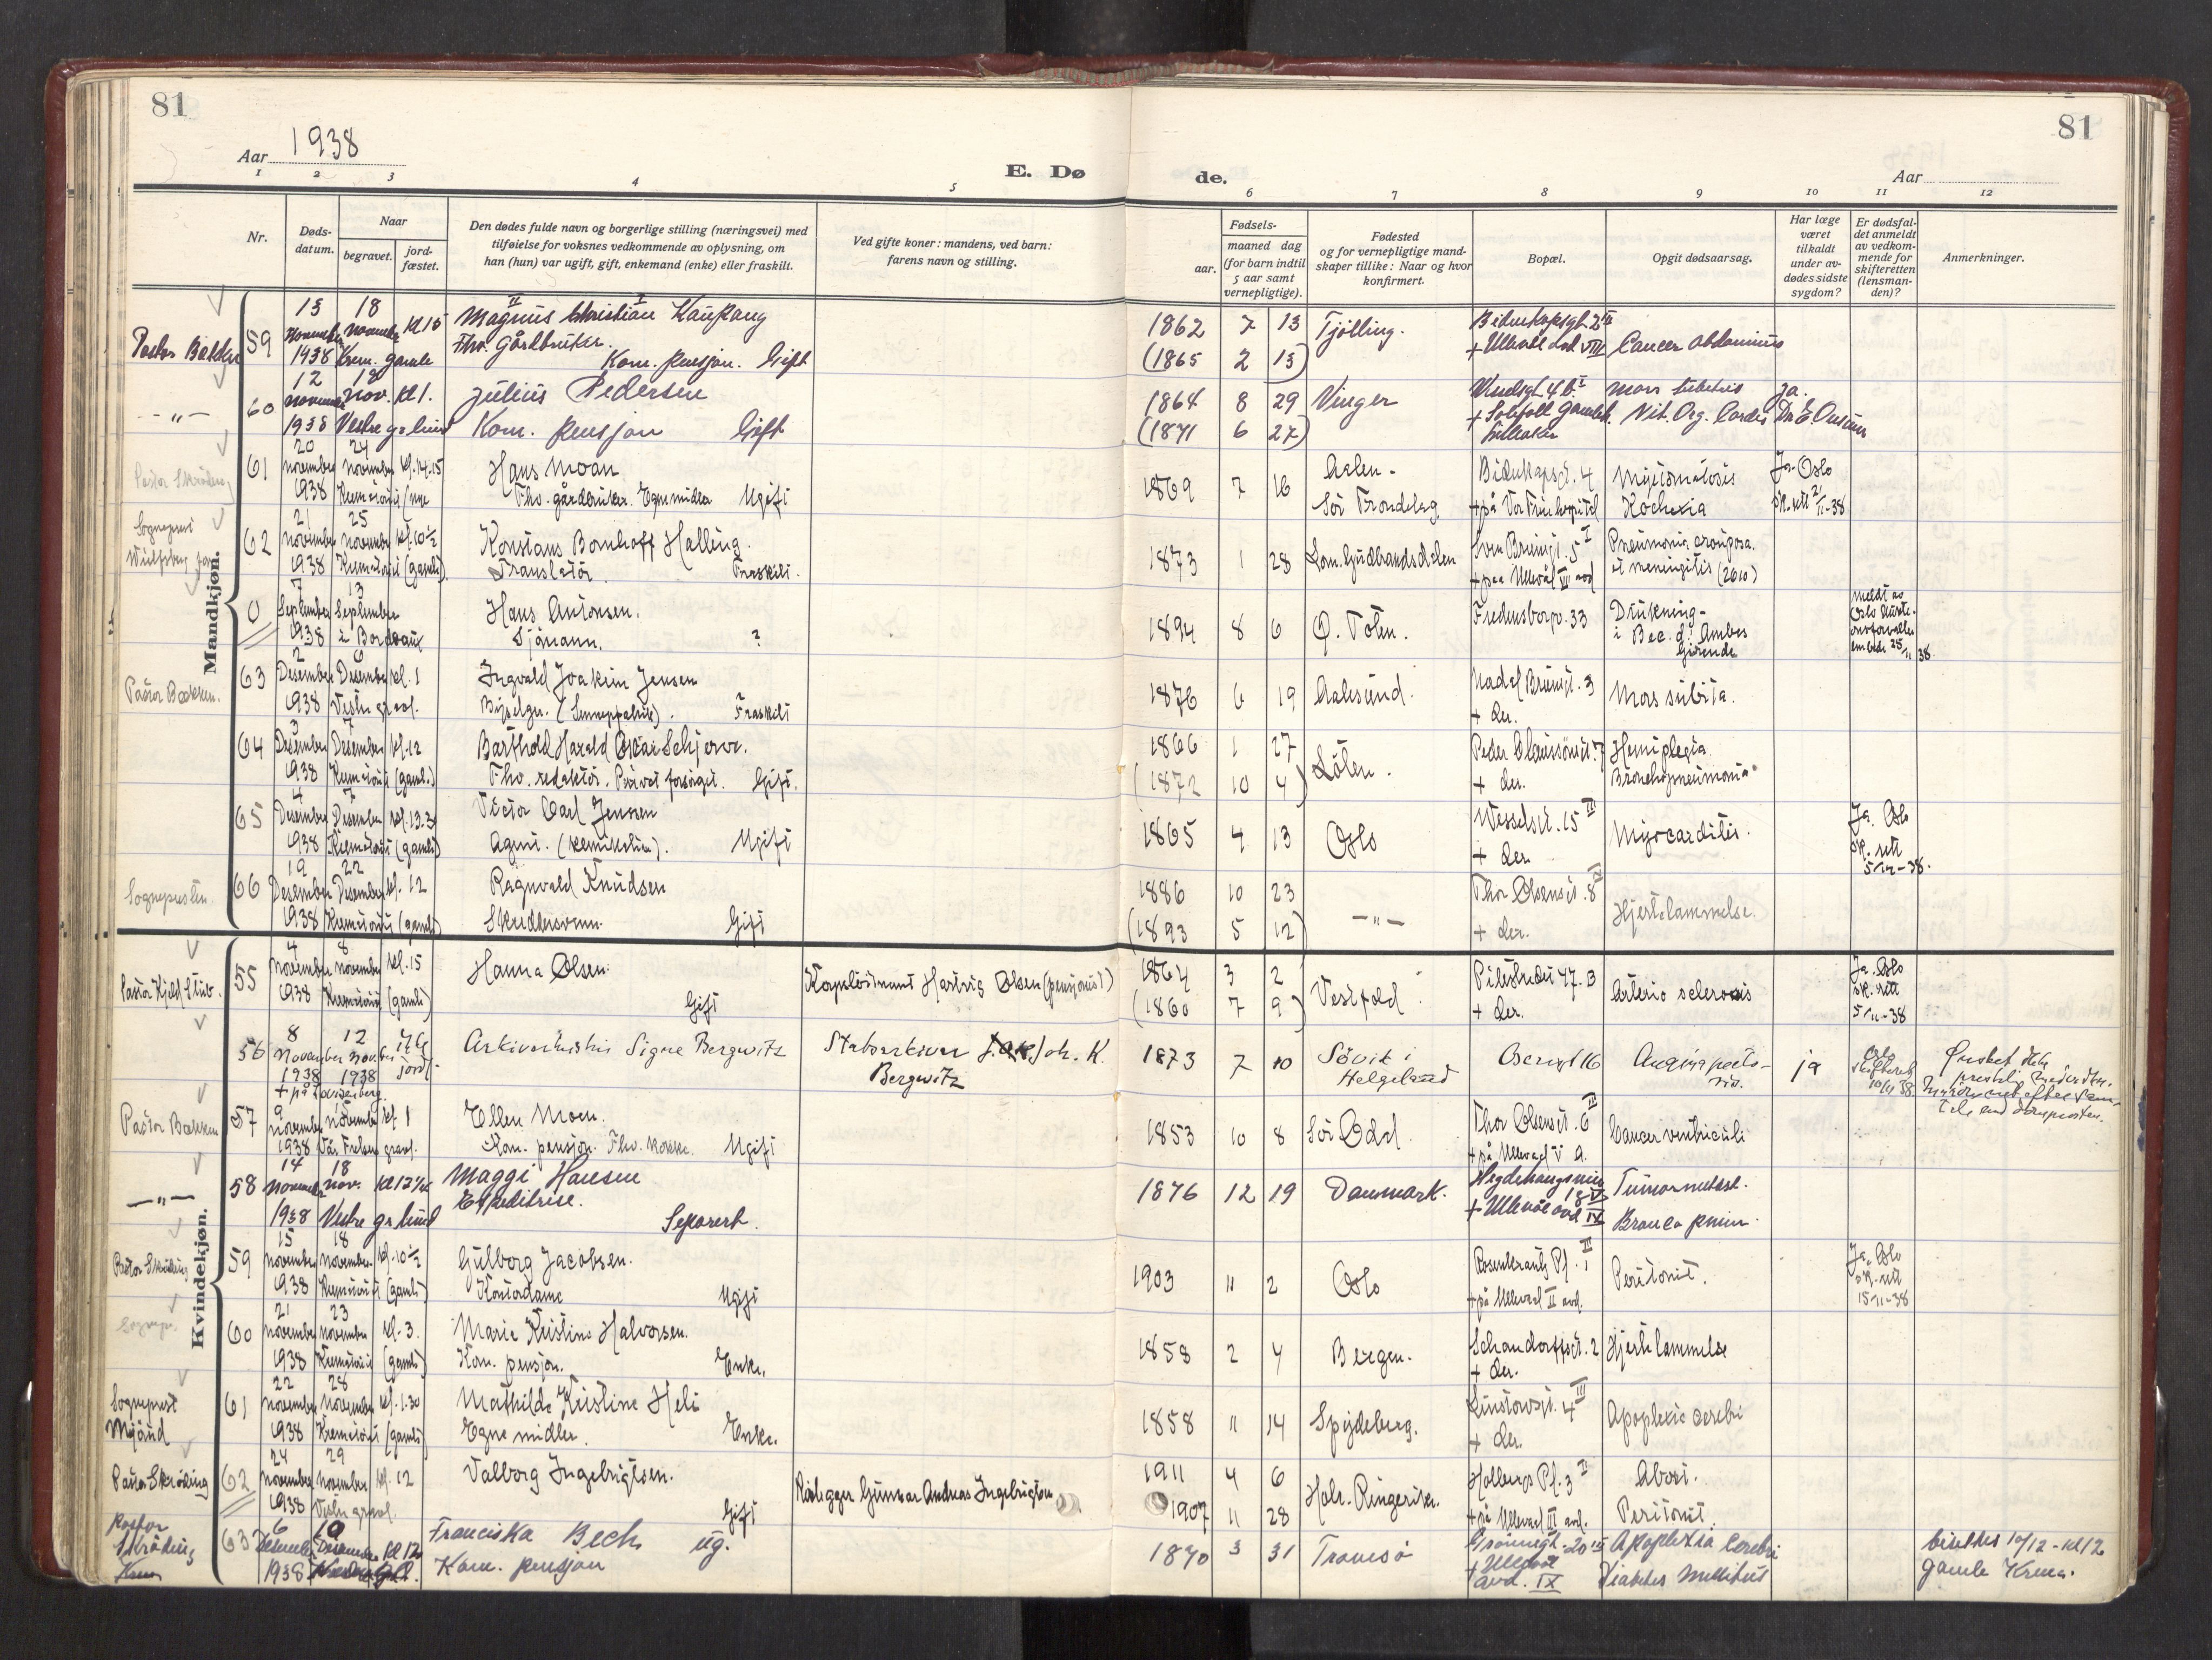 81
81
Aar 1938
E. Dø de.
Aar
1 2 3 4 5 6 7 8 9 10 11 12
Nr.
Døds-datum.
Naar
begravet.
jord-fæstet.
Den dødes fulde navn og borgerlige stilling (næringsvei) med
tilføielse for voksnes vedkommende av oplysning, om
han (hun) var ugift, gift, enkemand (enke) eller fraskilt.
Ved gifte koner: mandens, ved barn:
farens navn og stilling.
Fødsels-
aar.
maaned dag
(for barn indtil
5 aar samt
vernepligtige).
Fødested
og for vernepligtige mand-
skaper tillike: Naar og hvor
konfirmert.
Bopæl.
Opgit dødsaarsag.
Har læge
været
tilkaldt
under av-
dødes sidste
sygdom?
Er dødsfal-
det anmeldt
av vedkom-
mende for
skifteretten
(lensman-
den)?
Anmerkninger.
Mandkjøn.
Pastor Bakken 59 15 18 Magnus Christian Kaupang 1862 7 13 Tjølling.
November November Kl 15 Fhv. Gårdbruker. + Ullevål avd VIII Cancer abdominis
1938 Krem. gamle Kom. pensjon. Gift (1865 2 15)
—"— 60 12 18 Julius Pedersen 1864 8 29 Vinger Mors subita Ja.
November Nov. Kl 1.
1938 Vestre gr.lund Kom. pensjon Gift (1871 6 27)
Pastor Skråding 61 20 24 Hans Moan 1869 7 16 Aalen - 4 Ja. Oslo
November November kl. 14.15 Fhv. gårdbruker. Egne midler Ugift Sør Trondelag + på Vor Frue hospital sk. rett 21/11-38
1938 Krematoriet (nye
Sogneprest 62 21 25 Konstans Bomhoff Halling. 1873 1 28 Lom. Gudbrandsdalen 5 I Pneumonia crouposa.
November November kl. 10½ Translatør. Fraskilt. + paa Ullevål VII avd et meningitis
1938 Krematoriet (gamle)
0 7 13 Hans Antonsen. 1894 8 6 Ø. Toten. Fredensborgv. 33 Drukning - meldt av
September September Sjømann. ? i Bec. d'Ambes Oslo
1938 i Bordeaux Gironde 25/11 38.
Pastor Bakken. 63 2 6 Ingvald Joakim Jensen 1876 6 19 Aalesund. 3 Mors subita.
Desember Desember kl. 1 Fraskilt + der.
1938 Vestre gravl.
64 3 7 Barthold Harald Oskar Schjerve. 1866 1 27 Løten. Peder Claussønsgt. 7 Hemiplegia
Desember Desember kl. 12 Fhv. redaktør. Privat forsørget. Gift. (1872 10 4) + der. Bronchopneumonia
1938 Krematoriet (gamle)
65 4 7 Victor Carl Jensen 1865 4 13 Oslo Wesselsgt. 15 III Myocarditis. Ja. Oslo
Desember Desember Agent. (kemikalier). Ugift + der sk. rett
1938 Krematoriet (gamle) 5/12-38.
Sognepresten. 66 19 22 Ragnvald Knudsen 1886 10 23 —"— Thor Olsensgt. 8 Hjertelammelse.
Desember Desember kl. 12 Gift (1893 5 12) + der.
1938 Krematoriet (gamle)
Kvindekjøn.
Pastor Kjeld Stub. 55 4 8 Hanna Olsen. Kapteløitnant Hartvig Olsen (pensjonist) 1864 3 2 Vestfold Pilestredet 47.B Arterio sclerosis Ja. Oslo
November November kl. 15 Gift (1860 7 9) + der. sk. rett
1938 Krematoriet (gamle) 5/11-38
56 8 12 Arkivarhustru Signe Bergwitz Statsarkivar Joh. K. 1873 7 10 Søvik i Oscarsgt 16 Angina pecto- ja Oslo Ønsket ikke
November Nov.ber jord. Bergwitz Helgeland ris. skifterett
1938 1938 10/11 38
+ på Lovisenberg.
Pastor Bakken 57 9 Ellen Moen. 1853 10 8 Sør Odal. Thor Olsensgt. 6 III Cancer ventriculi
November November kl. 1 Kom. pensjon. Fhv. kokke. Ugift + på Ullevaal V a.
1938 Vår Frelsers gravl.
—"— 58 14 18 Maggi Hansen 1876 12 19 Danmark. Hegdehaugsveien 18 Tumor
November Nov. Expeditrise. + Ullevål avd IX
1938 Vestre gr.lund Separert.
Pastor Skråding 59 15 18 Gulborg Jacobsen. 1903 11 2 Oslo Rosenkrantz Pl. 1 III Peritonit. Ja. Oslo
November November kl. 10½ Kontordame Ugift + på Ullevaal II avd. sk. rett
1938 Krematoriet (gamle) 15-11-38
Sognepr. 60 21 23 Marie Kristine Halvorsen. 1858 2 4 Bergen. Schandorffsgt. 2 Hjertelammelse
November November kl. 3. Kom. pensjon. Enke. + der.
1938 Krematoriet (gamle)
Sogneprest 61 22 28 Mathilde Kristine Heli 1858 11 14 Spydeberg. Linstowsgt. 4 III Apoplexia cerebri
Mjøund November November kl. 1.30 Egne midler. Enke. + der.
1938 Krematoriet (gamle)
Pastor Skråding 62 24 29 Valborg Ingebrigtsen. Rørlegger Gunnar Andreas Ingebrigtsen 1911 4 6 Hole. Ringerike. Holbergs Pl. 3 II Abort.
November November kl. 12 Gift 1907 11 28 + på Ullevaal III avd. Peritonit.
1938 Vestre gravl.
Pastor Skråding 63 6 10 Franciska Bech ug. 1870 3 31 Tromsø 20 III Apoplexia Cerebri bisettes 10/12 - kl 12
Krem Desember Desember Kl 12 Kom. pensjon + Ullevål avd. IX Diabetes Mellitus gamle Krem.
1938